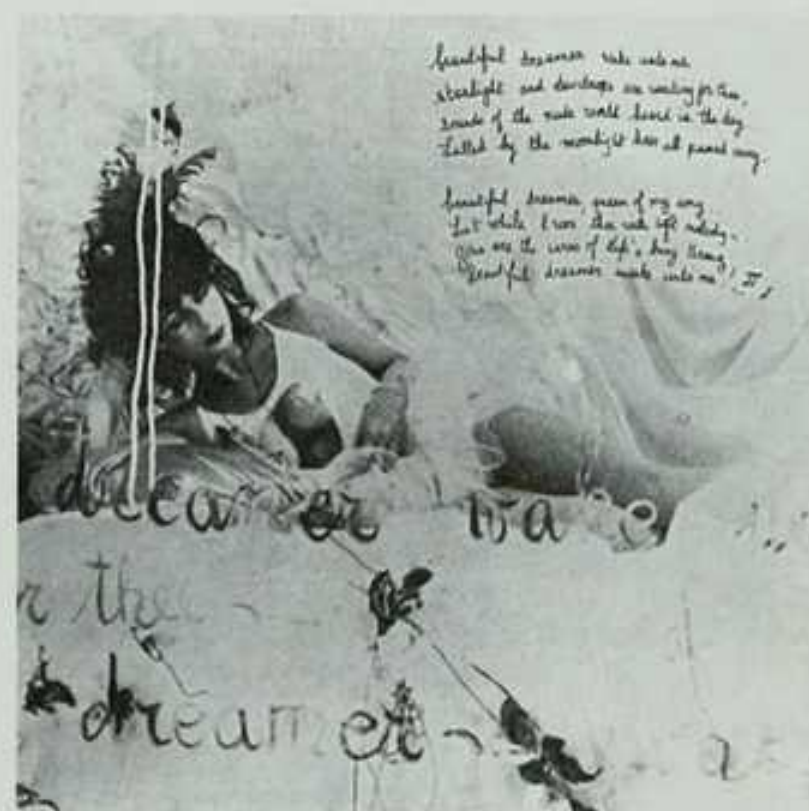 beautiful dreamer wake unto me
starlight and dewdrops are waiting for thee,
sounds of the rude world heard in the day
Lulled by the moonlight have all passed away.
beautiful dreamer, queen of my song
List while I woo thee with soft melody.
Gone are the cares of life's busy throng,
beautiful dreamer wake unto me!
dreamer wake
r thee
dreamer